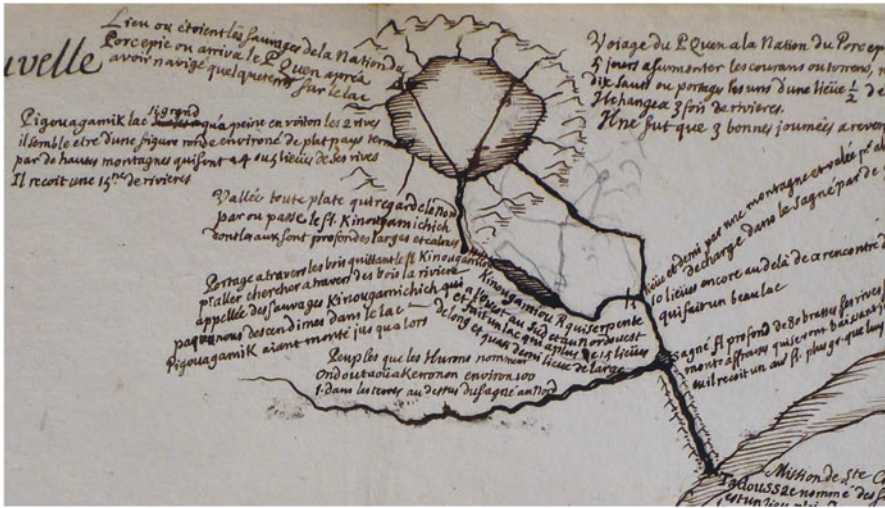 uvelle
Lieu ou étoient les sauvages de la Nation du
Porcepic ou arriva le P. Quen aprés
avoir navigé quelque tems sur le lac
Pigouagamik lac si grand qu'a peine en voit on les 2 rives
il semble etre d'une figure ronde environé de plat pays termi
par de hautes montagnes qui sont a 4 ou 5 lieües de ses rives
Il recoit une 15.ne de rivieres
Vallée toute plate qui regarde le No
par ou passe le fl. Kinougamichich
dont les aux sont profondes larges et calmes
Portage a travers les bois quittant le fl. Kinougamiou
pr aller chercher a travers des bois la riviere
appellée des sauvages Kinougamichich qui
par nous descendimes dans le lac
Pigouagamik aiant monté jusqu'a lors
Kinougamiou R qui serpente
a l'ouest au sud et au Nordouest
et fait un lac qui a plus de 15 lieües
de long et quasi demi lieüe de large
Peuples que les Hurons nomment
Ondoutaoüakeronon environ 100
l. dans les terres au dessus du Sagné au Nord
Voiage du P. Quen a la Nation du Porcep
5 jours a surmonter les courans ou torrens,
dix sauts ou portages les uns d'une lieüe ½ de
Il changea 3 fois de rivieres.
Il ne fut que 3 bonnes journées a reven
lieüe et demi par une montagne et valée pr al
decharge dans le Sagné par de
10 lieües encore au dela de a rencontre d
qui fait un beau lac
Sagné fl. profond de 80 brasses ses rives
monts affreux qui se vont baissant j
ou il recoit un au fl. plus gr. que luy
Mission de Ste C
Tadoussac nommé des S